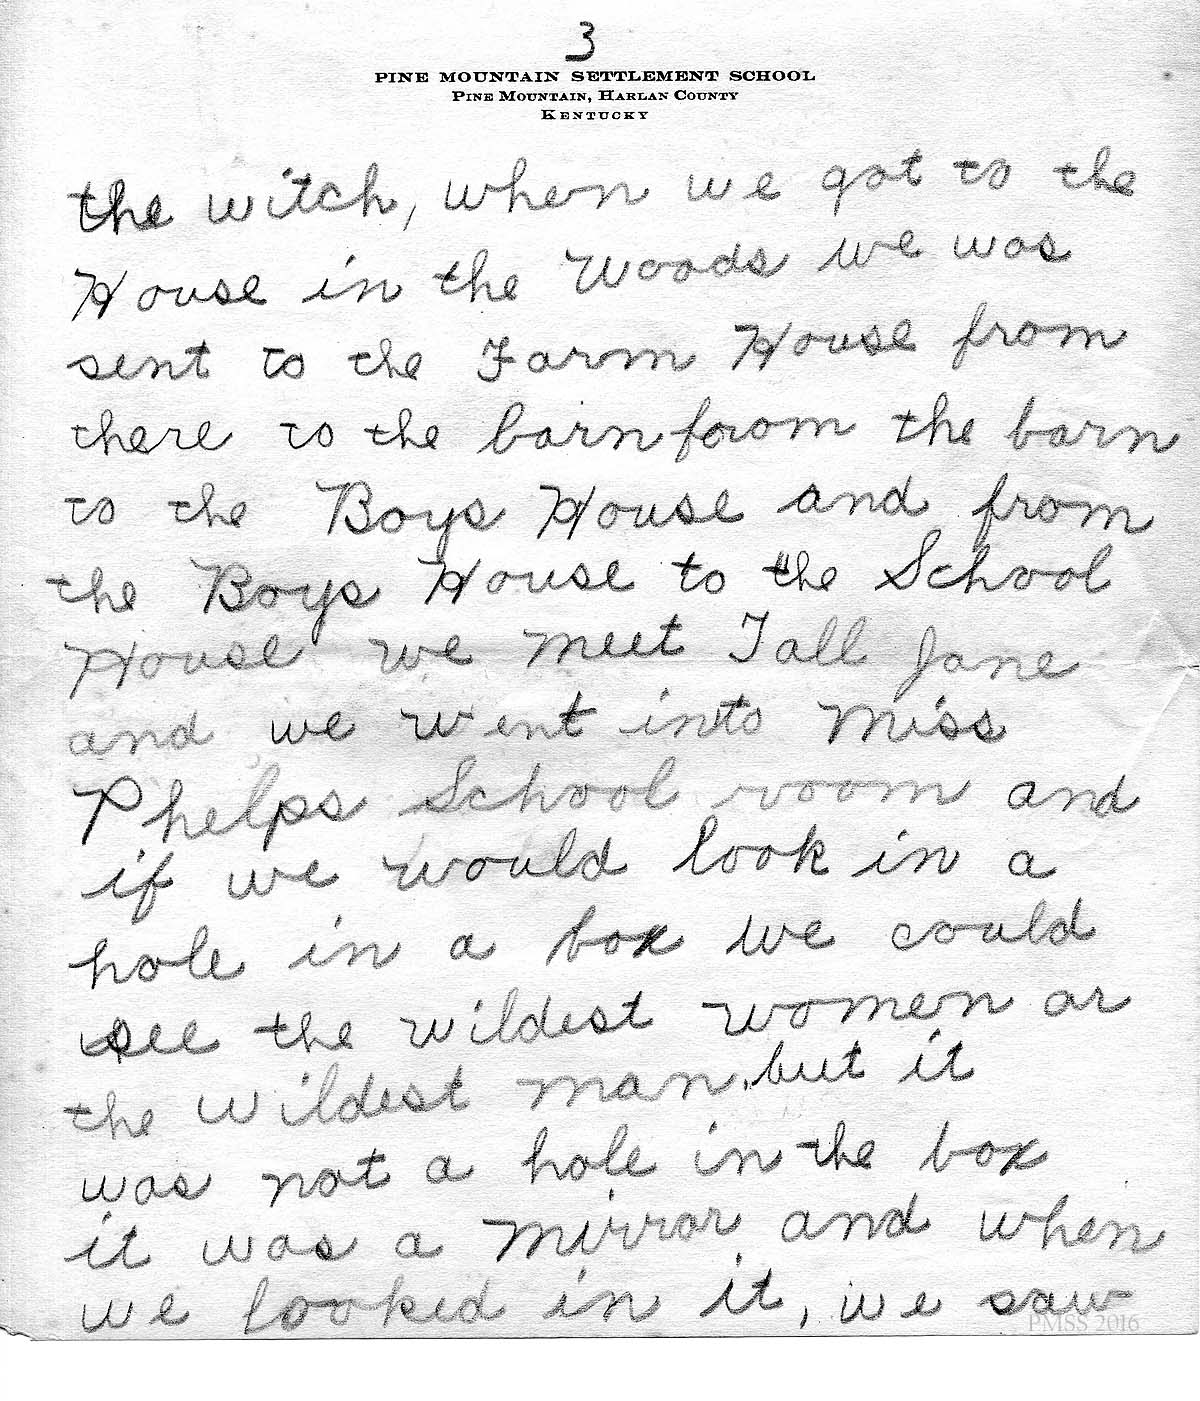 3
PINE MOUNTAIN SETTLEMENT SCHOOL
PINE MOUNTAIN, HARLAN COUNTY
KENTUCKY
the witch, when we got to the
House in the Woods we was
sent to the Farm House from
there to the barn from the barn
to the Boys House and from
the Boys House to the School
House we meet Tall Jane
and we went into Miss
Phelps School room and
if we would look in a
hole in a box we could
see the wildest women or
the wildest man, but it
was not a hole in the box
it was a mirror and when
we looked in it, we saw
PMSS 2016